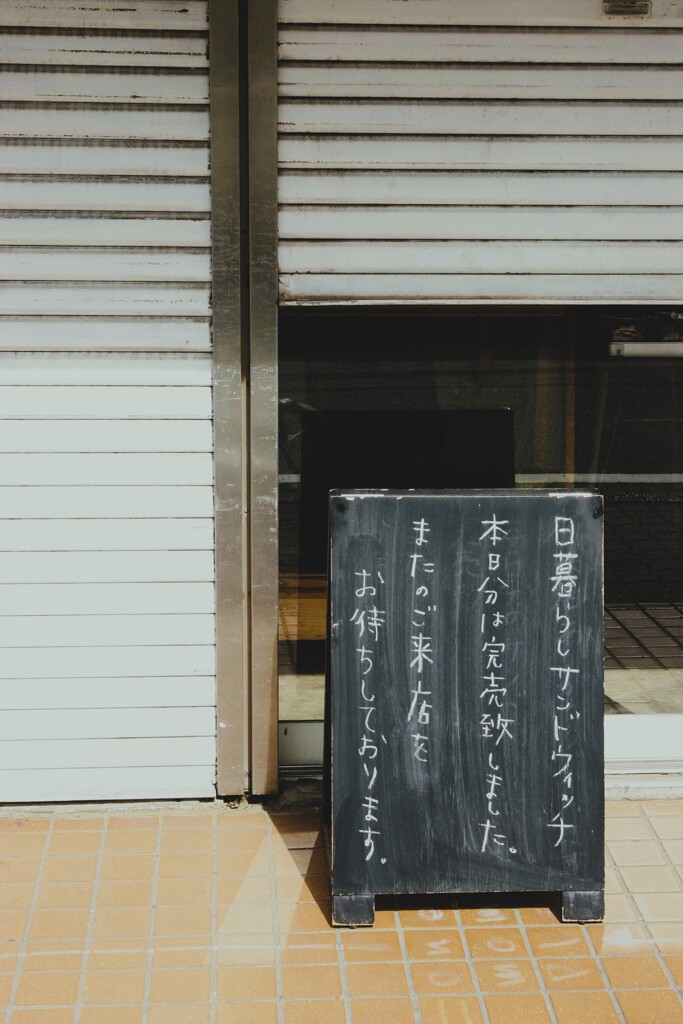 日暮らしサンドウィッチ
本日分は完売致しました。
またのご来店を
お待ちしております。